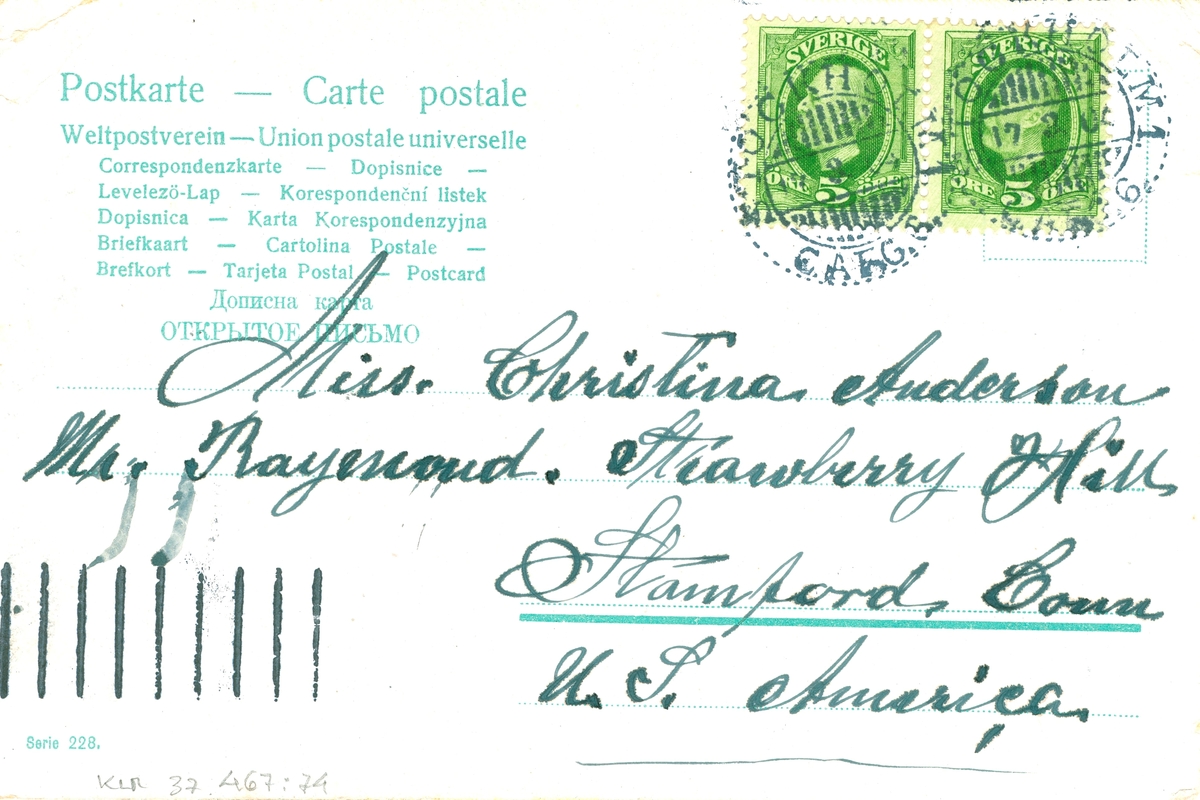 Postkarte — Carte postale
Weltpostverein — Union postale universelle
Correspondenzkarte — Dopisnice —
Levelezö-Lap — Korespondenční listek
Dopisnica — Karta Korespondenzyjna
Briefkaart — Cartolina Postale —
Brefkort — Tarjeta Postal — Postcard
Дописна карта
ОТКРЫТОЕ ПИСЬМО
SVERIGE
ÖRE 5 ÖRE
SVERIGE
ÖRE 5 ÖRE
17 2
Miss. Christina Anderson
Mr. Rayemond. Strawberry Hill
Stamford, Conn
U. S. America.
Serie 228.
KLR 37.467:74